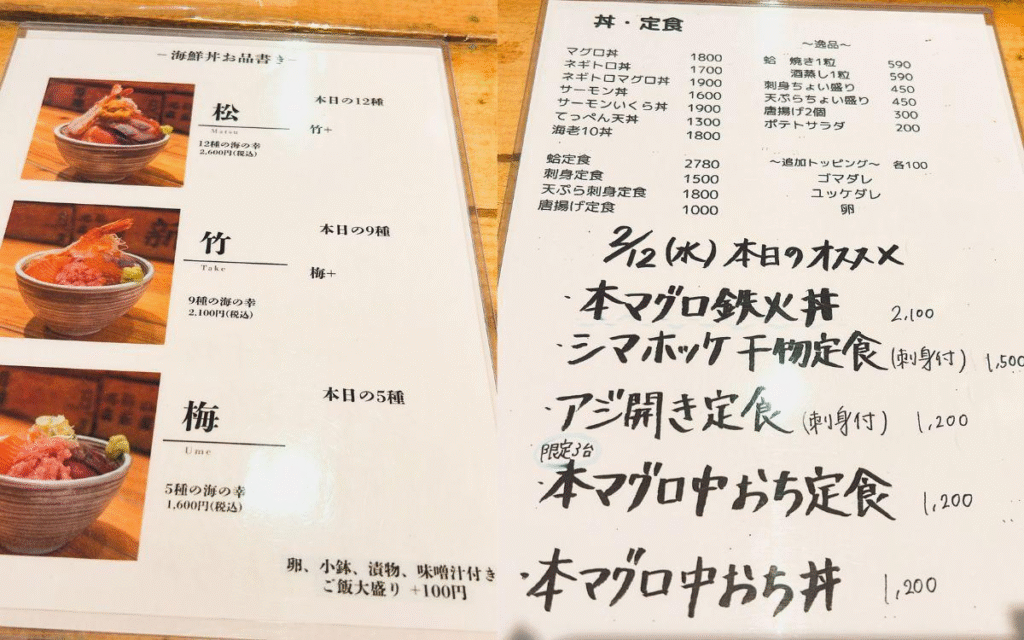 －海鮮丼お品書き－
松
Matsu
12種の海の幸
2,600円(税込)
本日の12種
竹+
竹
Take
9種の海の幸
2,100円(税込)
本日の9種
梅+
梅
Ume
5種の海の幸
1,600円(税込)
本日の5種
卵、小鉢、漬物、味噌汁付き
ご飯大盛り +100円
丼・定食
マグロ丼 1800
ネギトロ丼 1700
ネギトロマグロ丼 1900
サーモン丼 1600
サーモンいくら丼 1900
てっぺん天丼 1300
海老10丼 1800
蛤定食 2780
刺身定食 1500
天ぷら刺身定食 1800
唐揚げ定食 1000
～逸品～
蛤 焼き1粒 590
酒蒸し1粒 590
刺身ちょい盛り 450
天ぷらちょい盛り 450
唐揚げ2個 300
ポテトサラダ 200
～追加トッピング～ 各100
ゴマダレ
ユッケダレ
卵
2/12(水)本日のオススメ
・本マグロ鉄火丼 2,100
・シマホッケ干物定食(刺身付) 1,500
・アジ開き定食(刺身付) 1,200
限定3台
・本マグロ中おち定食 1,200
・本マグロ中おち丼 1,200